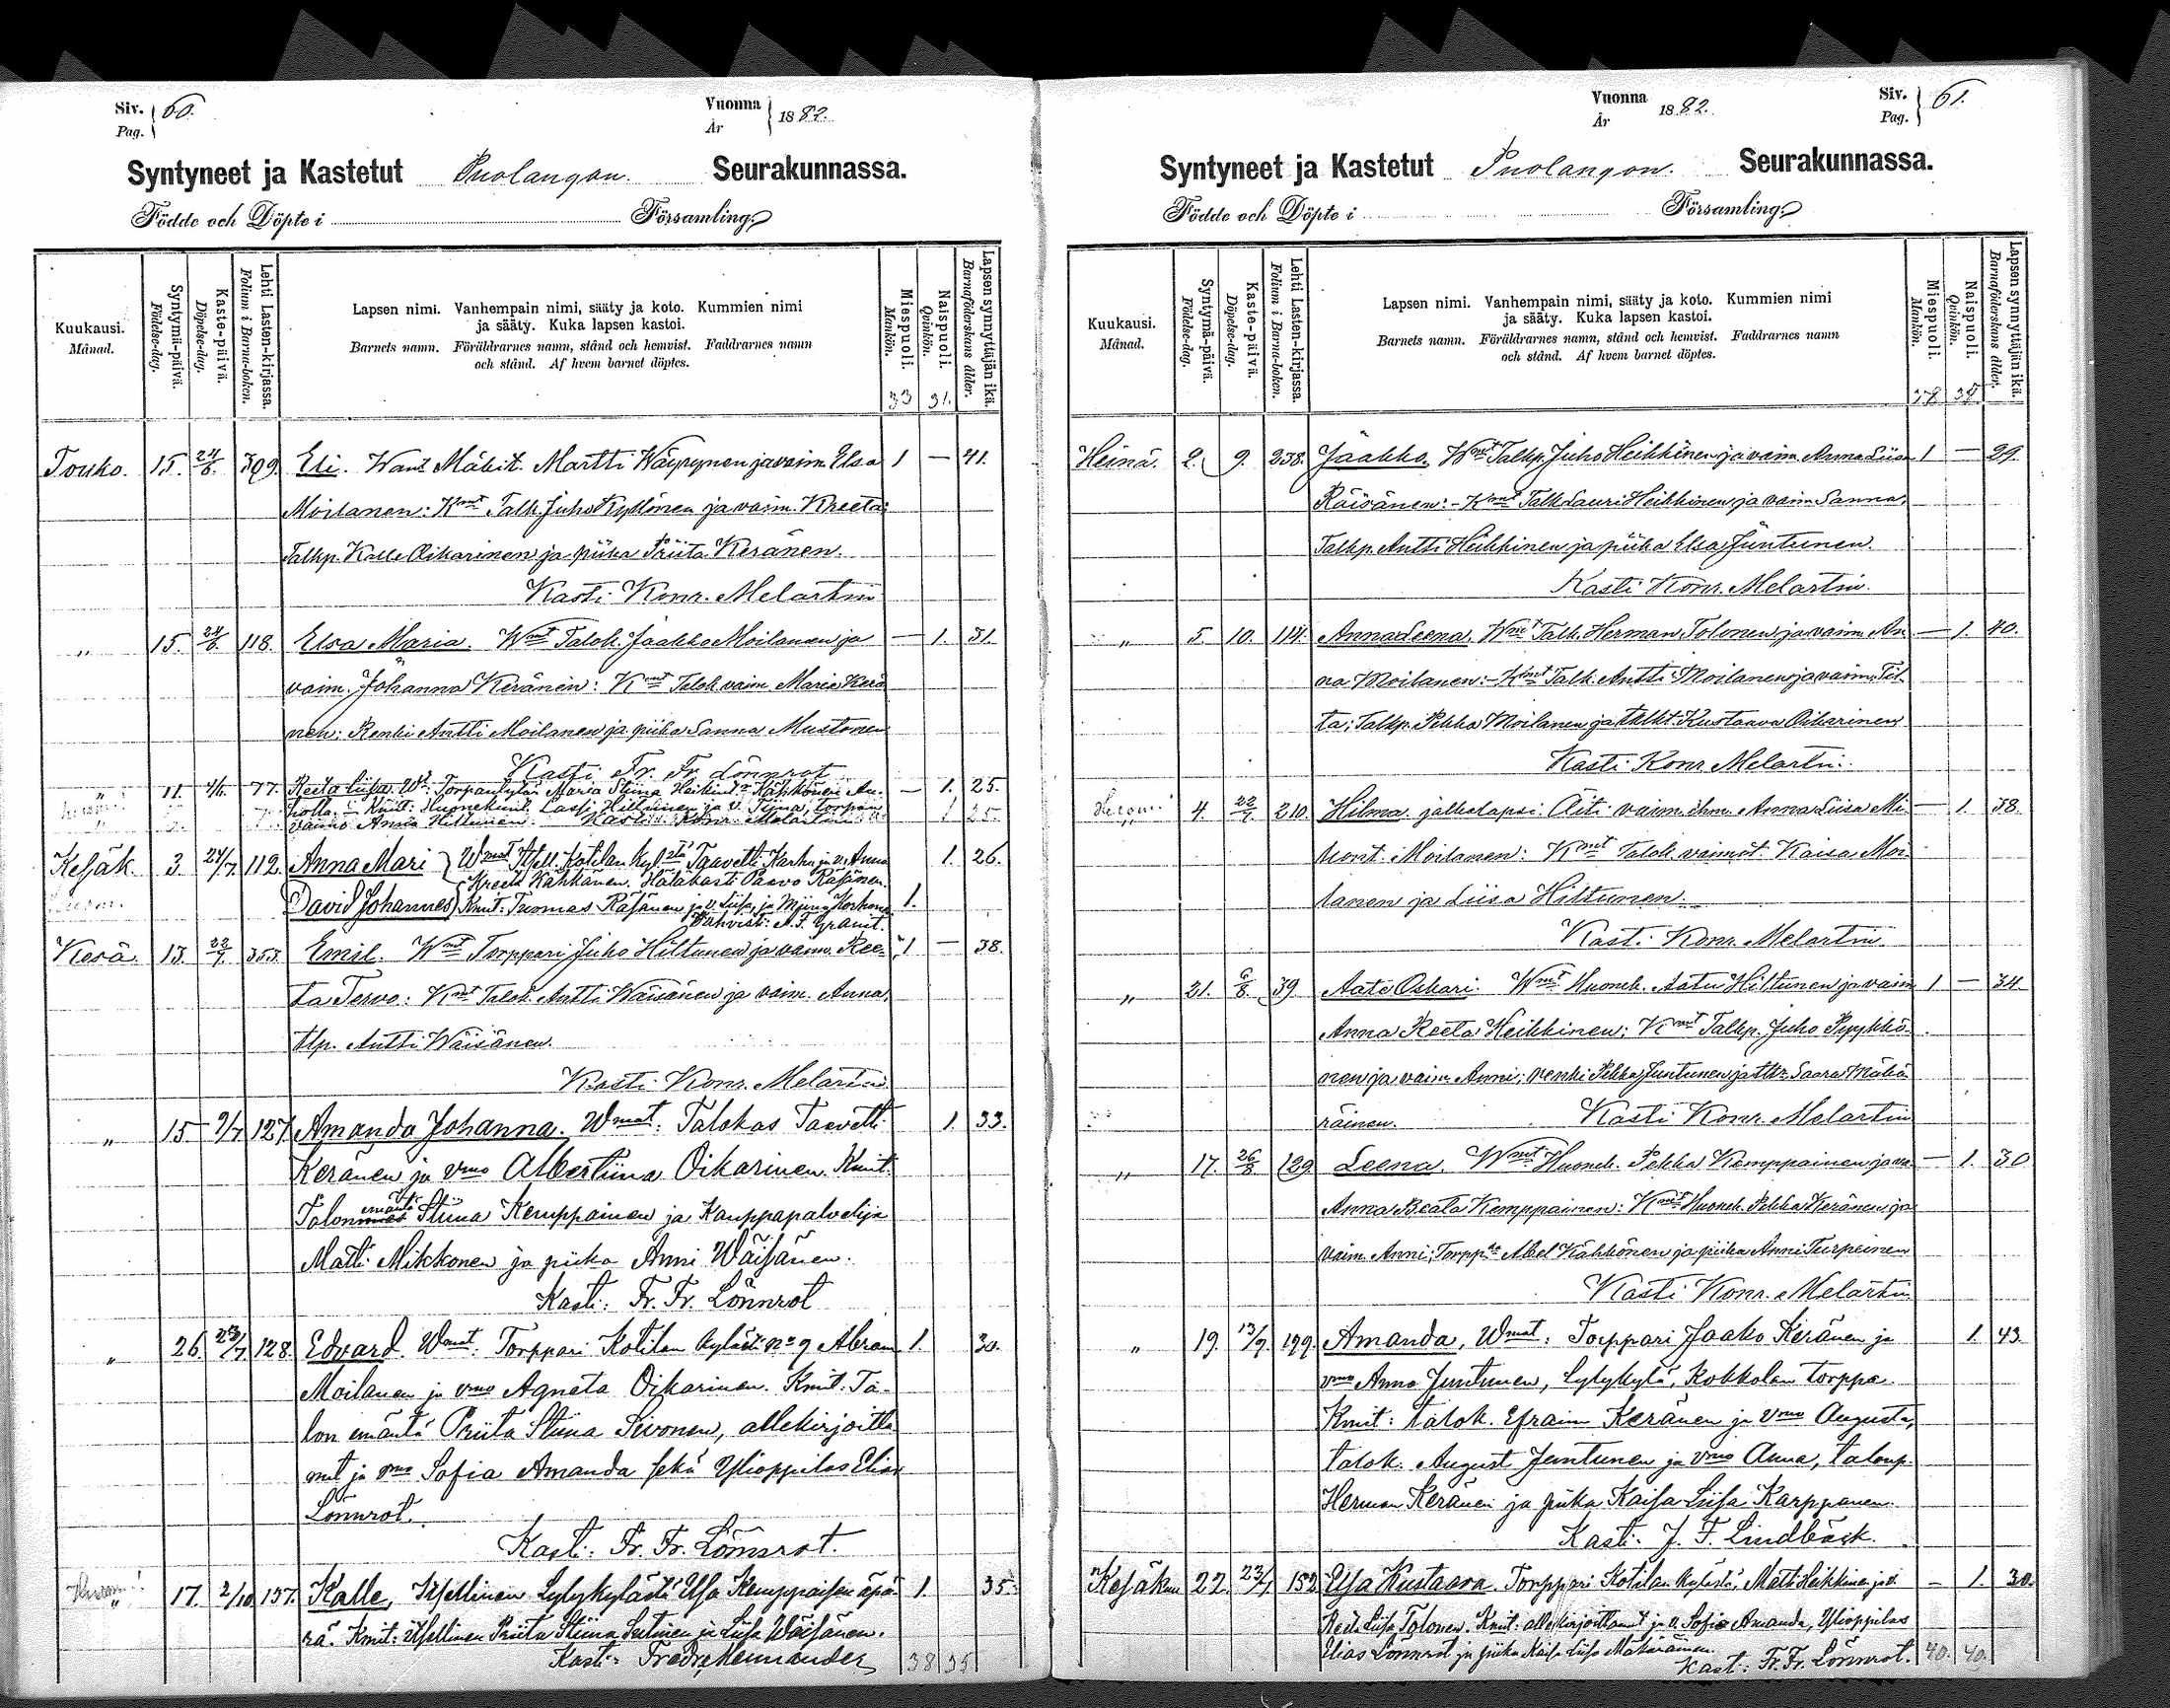 Siv. 60.
Pag.
Vuonna 1882.
År
Syntyneet ja Kastetut Puolangon. Seurakunnassa.
Födde och Döpte i Församling.
Kuukausi. Månad.
Syntymä-päivä. Födelse-dag.
Kaste-päivä. Döpelse-dag.
Lehti Lasten-kirjassa. Folium i Barna-boken.
Lapsen nimi. Vanhempain nimi, sääty ja koto. Kummien nimi
ja sääty. Kuka lapsen kastoi.
Barnets namn. Föräldrarnes namn, stånd och hemvist. Faddrarnes namn
och stånd. Af hvem barnet döptes.
Miespuoli. Mankön.
Naispuoli. Qvinkön.
Lapsen synnyttäjän ikä. Barnaföderskans ålder.
33 31.
Touko. 15. 24/6. 309. Eli. Mäkit. Martti Wäyrynen ja vaim. Elsa 1 — 41.
Moilanen: Kmt Talk. Juho Kyllönen ja vaim. Kreeta;
Talkp. Kalle Oikarinen ja piika Priita Keränen.
Kasti Konr. Melartin
„ 15. 24/6. 118. Elsa Maria. Wmt Talok. Jaakko Moilanen ja — 1. 31.
vaim. Johanna Keränen: Kmt Talok. vaim. Maria Kerä
nen; Renki Antti Moilanen ja piika Sanna Mustonen
Kasti Fr. Fr. Lönnrot
„ 11. 4/6. 77. Reeta Liisa. Maria Stiina — 1. 25.
Kmit: Hiltunen ja v. Tiina, torpan
Anna Hiltunen. Kasti Konr. Melartin
Kesäk. 3. 24/7. 112. Anna Mari Wmat Itsell. Kotilan kyl. Taavetti Karhu ja v. Anna 1. 26.
Kreeta Kähkönen. Hätäkasti Paavo Räisänen.
David Johannes Kmit: Tuomas Räisänen ja v. Liisa, ja Korhonen 1.
Vahvist: A. F. Granit.
Kesä. 13. 22/7. 353. Emil. Wmt Torppari Juho Hiltunen ja vaim. Ree- 1 — 38.
ta Tervo: Kmt Talok. Antti Wäisänen ja vaim. Anna,
tlp. Antti Wäisänen.
Kasti Konr. Melartin
„ 15 9/7 127 Amanda Johanna. Wmat: Talokas Taavetti 1. 33.
Keränen ja vmo Albertiina Oikarinen. Kmit:
Talon emäntä Stiina Kemppainen ja Kauppapalvelija
Matti Mikkonen ja piika Anni Wäisänen.
Kasti: Fr. Fr. Lönnrot
„ 26. 23/7 128. Edvard. Wmat: Torppari Kotilan kylästä No 9 Abram 1. 30.
Moilanen ja vmo Agneta Oikarinen. Kmit: Ta-
lon emäntä Priita Stiina Sivonen, allekirjoitta
nut ja vmo Sofia Amanda sekä Ylioppilas Elias
Lönnrot.
Kasti: Fr. Fr. Lönnrot.
„ 17. 2/10 137. Kalle, Itsellinen Lylykylästä Elsa Kemppaisen äpä- 1. 35.
rä. Kmit: Itsellinen Priita Stiina Seitinen ja Liisa Wäisänen.
Kasti: Fredr. Mennander
38 35
Vuonna 1882.
År
Siv. 61.
Pag.
Syntyneet ja Kastetut Puolangon. Seurakunnassa.
Födde och Döpte i Församling.
Kuukausi. Månad.
Syntymä-päivä. Födelse-dag.
Kaste-päivä. Döpelse-dag.
Lehti Lasten-kirjassa. Folium i Barna-boken.
Lapsen nimi. Vanhempain nimi, sääty ja koto. Kummien nimi
ja sääty. Kuka lapsen kastoi.
Barnets namn. Föräldrarnes namn, stånd och hemvist. Faddrarnes namn
och stånd. Af hvem barnet döptes.
Miespuoli. Mankön.
Naispuoli. Qvinkön.
Lapsen synnyttäjän ikä. Barnaföderskans ålder.
38 35.
Heinä. 2. 9. 238. Jaakko. Wmt Talkp. Juho Heikkinen ja vaim. Anna Liisa 1 — 29.
Räisänen: - Kmt Talk. Lauri Heikkinen ja vaim Sanna;
Talkp. Antti Heikkinen ja piika Elsa Juntunen.
Kasti Konr. Melartin.
„ 5. 10. 114. Anna Leena. Wmt Talk. Herman Tolonen ja vaim. An — 1. 40.
na Moilanen: - Kmt Talk. Antti Moilanen ja vaim. Tii-
ta; Talkp. Pekka Moilanen ja talkt. Kustaava Oikarinen
Kasti Konr. Melartin.
„ 4. 22/7. 210. Hilma. jalkalapsi. Äiti vaim. ihm. Anna Liisa Mi- — 1. 38.
Moilanen: Kmt Talok. vaimot Kaisa Moi-
lanen ja Liisa Hiltunen.
Kasti Konr. Melartin
„ 31. 6/8. 39. Aato Oskari. Wmt Huonek. Aatu Hiltunen ja vaim 1 — 34.
Anna Reeta Heikkinen; Kmt Talkp. Juho Pyykkö-
nen ja vaim. Anni; renki Pekka Juntunen ja Saara Mäkä
räinen. Kasti Konr. Melartin
„ 17. 26/8. 129. Leena. Wmt Huonek. Pekka Kemppainen ja va. — 1. 30
Anna Beata Kemppainen: Kmt Huonek. Pekka Keränen ja
vaim. Anni; Abel Kähkönen ja piika Anni Turpeinen
Kasti Konr. Melartin
„ 19. 13/9. 199. Amanda, Wmat: Torppari Jaako Keränen ja 1. 43.
vmo Anna Juntunen, Lylykylä, Kokkolan torppa.
Kmit: talok. Efraim Keränen ja vmo Augusta,
talok. August Juntunen ja vmo Anna, taloup.
Herman Keränen ja piika Kaisa Liisa Karppanen.
Kasti: J. F. Lindbäck.
Kesäkuu 22. 23/7 152. Elsa Kustaava. Torppari Kotilan kylästä Matti Heikkinen ja v. — 1. 30.
Reeta Liisa Tolonen. Kmit: allekirjoittanut ja v. Sofia Amanda, Ylioppilas
Elias Lönnrot ja piika Kaisa Liisa Mäkäräinen.
Kasti: Fr. Fr. Lönnrot.
40. 40.